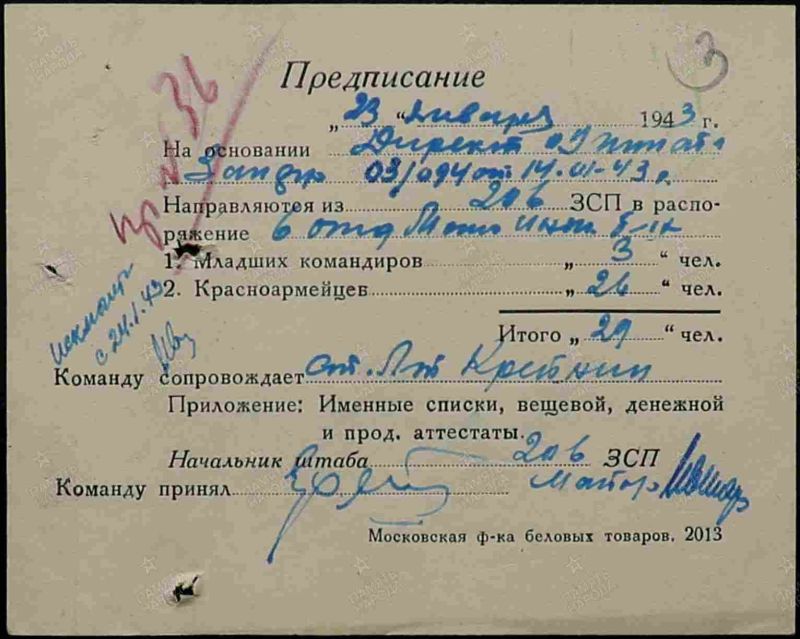 3
Пр № 36
Предписание
„23“ января 1943 г.
На основании Директ
03/094 от 14.01-43 г.
Направляются из 206 ЗСП в распо-
ряжение 6 отд
1. Младших командиров „ 3 “ чел.
2. Красноармейцев „ 26 “ чел.
Итого „ 29 “ чел.
с 24.1.43
Команду сопровождает ст. Л-т
Приложение: Именные списки, вещевой, денежной
и прод. аттестаты.
Начальник штаба 206 ЗСП
Команду принял
Майор
Московская ф-ка беловых товаров. 2013